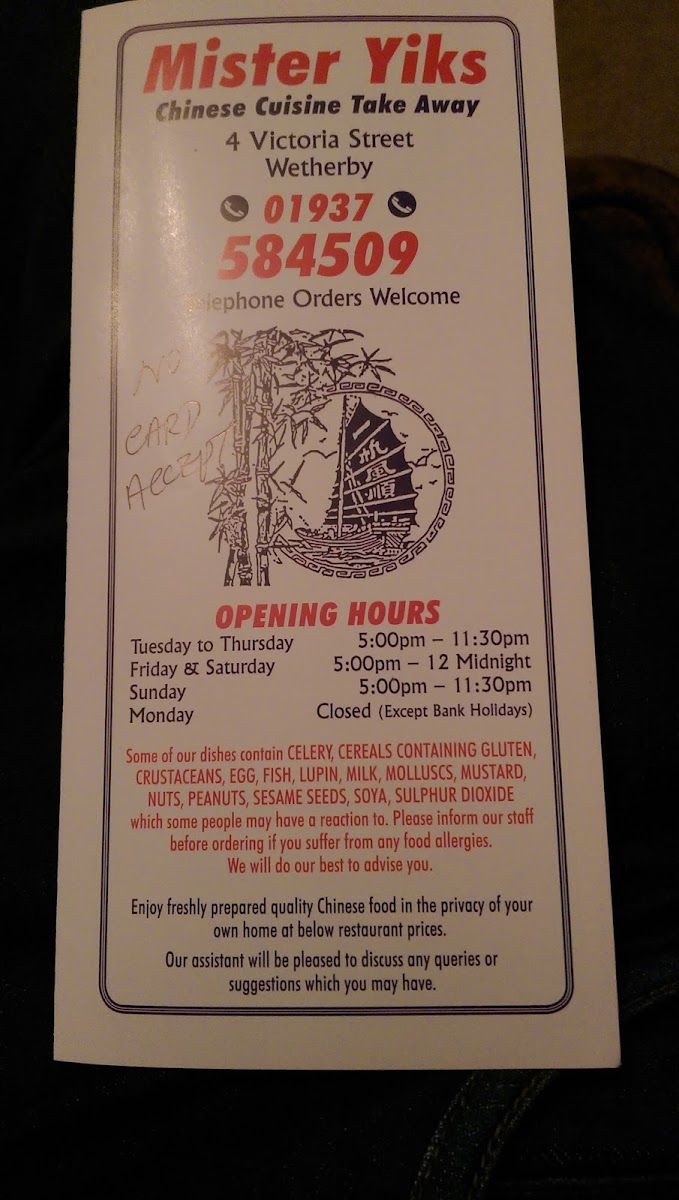 Mister Yiks
Chinese Cuisine Take Away
4 Victoria Street
Wetherby
01937
584509
Telephone Orders Welcome
NO
CARD
ACCEPT
帆風順
OPENING HOURS
Tuesday to Thursday 5:00pm – 11:30pm
Friday & Saturday 5:00pm – 12 Midnight
Sunday 5:00pm – 11:30pm
Monday Closed (Except Bank Holidays)
Some of our dishes contain CELERY, CEREALS CONTAINING GLUTEN,
CRUSTACEANS, EGG, FISH, LUPIN, MILK, MOLLUSCS, MUSTARD,
NUTS, PEANUTS, SESAME SEEDS, SOYA, SULPHUR DIOXIDE
which some people may have a reaction to. Please inform our staff
before ordering if you suffer from any food allergies.
We will do our best to advise you.
Enjoy freshly prepared quality Chinese food in the privacy of your
own home at below restaurant prices.
Our assistant will be pleased to discuss any queries or
suggestions which you may have.